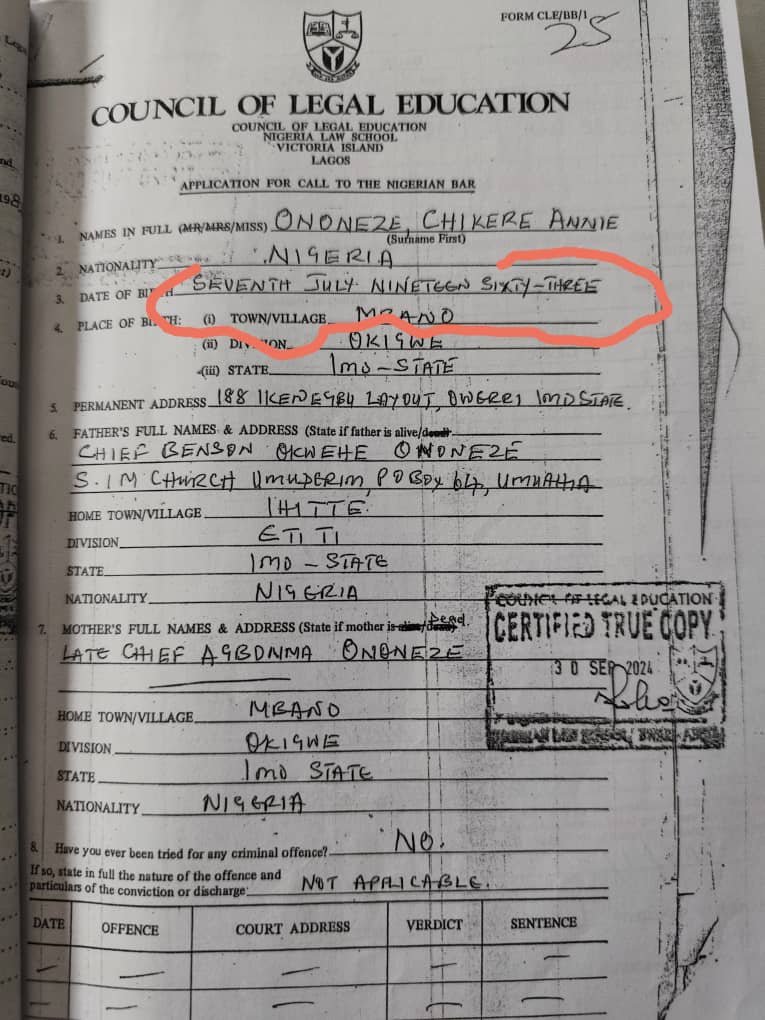 FORM CLE/BB/1
25
COUNCIL OF LEGAL EDUCATION
COUNCIL OF LEGAL EDUCATION
NIGERIA LAW SCHOOL
VICTORIA ISLAND
LAGOS
APPLICATION FOR CALL TO THE NIGERIAN BAR
1. NAMES IN FULL (MR/MRS/MISS) ONONEZE, CHIKERE ANNIE
(Surname First)
2. NATIONALITY NIGERIA
3. DATE OF BIRTH SEVENTH JULY NINETEEN SIXTY-THREE
4. PLACE OF BIRTH: (i) TOWN/VILLAGE MBANO
(ii) DIVISION OKIGWE
(iii) STATE IMO-STATE
5. PERMANENT ADDRESS 188 IKENEGBU LAYOUT, OWERRI IMO STATE.
6. FATHER'S FULL NAMES & ADDRESS (State if father is alive/dead)
CHIEF BENSON OKWEHE ONONEZE
S.I M CHURCH UMUDERIM, P O BOX 64, UMUAHIA
HOME TOWN/VILLAGE IHITTE
DIVISION ETITI
STATE IMO - STATE
NATIONALITY NIGERIA
7. MOTHER'S FULL NAMES & ADDRESS (State if mother is alive/dead) Dead.
LATE CHIEF AGBONMA ONONEZE
HOME TOWN/VILLAGE MBANO
DIVISION OKIGWE
STATE IMO STATE
NATIONALITY NIGERIA
COUNCIL OF LEGAL EDUCATION
CERTIFIED TRUE COPY
30 SEP 2024
8. Have you ever been tried for any criminal offence? NO.
If so, state in full the nature of the offence and
particulars of the conviction or discharge: NOT APPLICABLE.
DATE OFFENCE COURT ADDRESS VERDICT SENTENCE
— — — — —
— — — — —